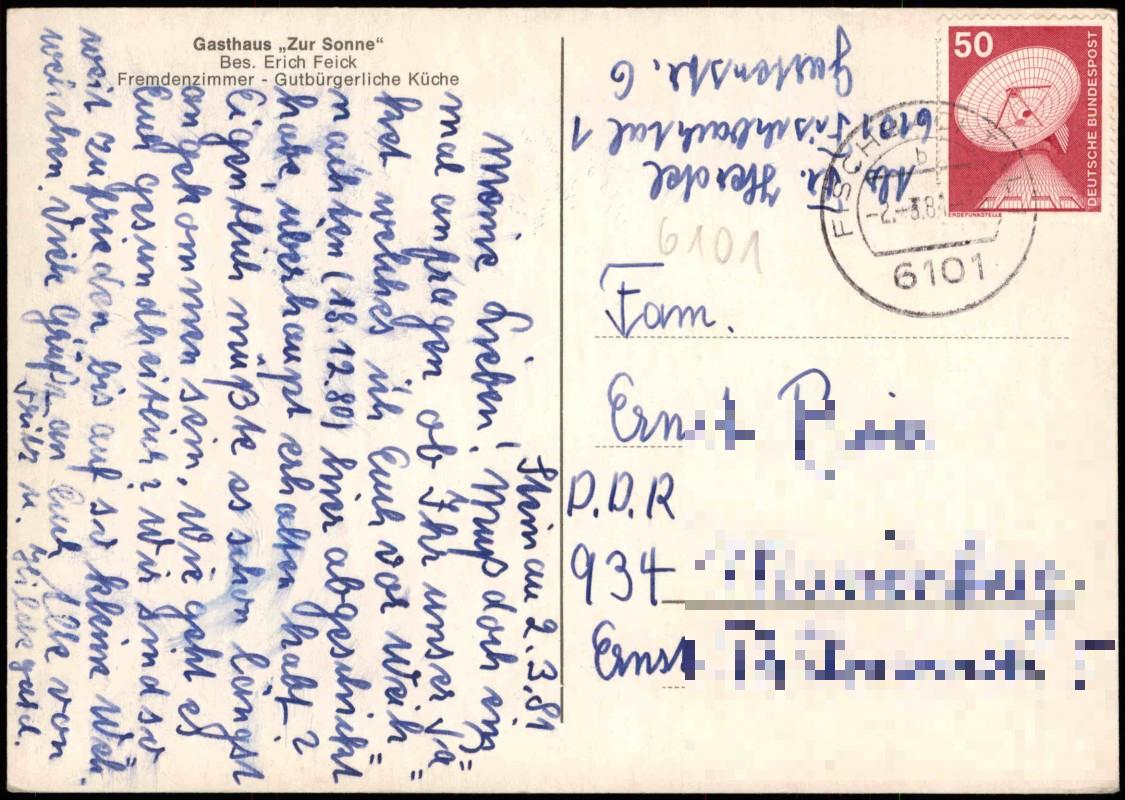 Gasthaus „Zur Sonne“
Bes. Erich Feick
Fremdenzimmer - Gutbürgerliche Küche
Steinau 2.3.81
Meine Lieben! Muß doch ein=
mal anfragen ob Ihr unser Pa=
ket welches ich Euch vor Weih=
nachten (18.12.80) hier abgeschickt
habe, überhaupt erhalten habt?
Eigentlich müßte es schon längst
angekommen sein, wie geht es
Euch gesundheitlich? Wir sind so
weit zufrieden bis auf so kleine Weh=
wehchen. Viele Grüße an Euch Alle von
Fritz u. Hildegard.
Abs. Fr. Herdel
6101 Fischbachtal 1
Gartenstr. 6
50
DEUTSCHE BUNDESPOST
ERDEFUNKSTELLE
-2.-3.81-
b
6101
6101
Fam.
Ernst
D.D.R
934
Ernst